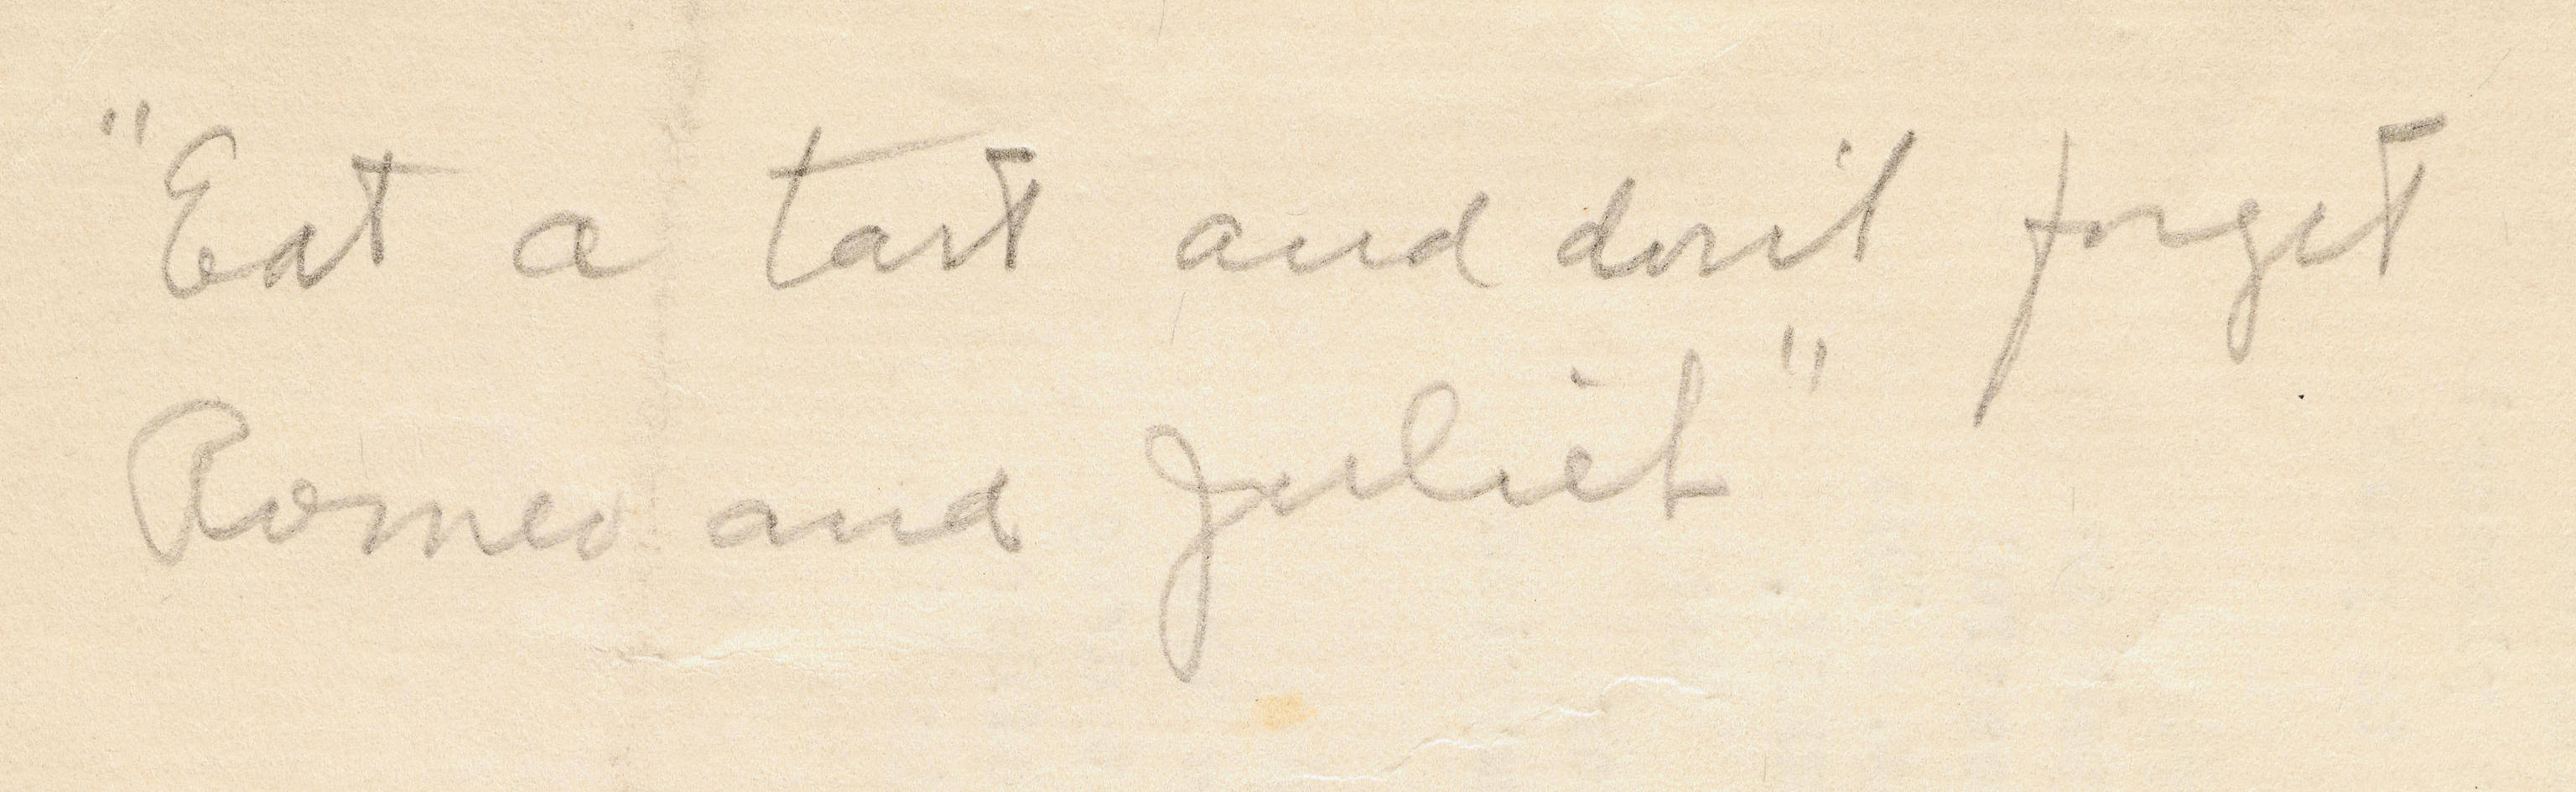 "Eat a tart and don't forget
Romeo and Juliet"